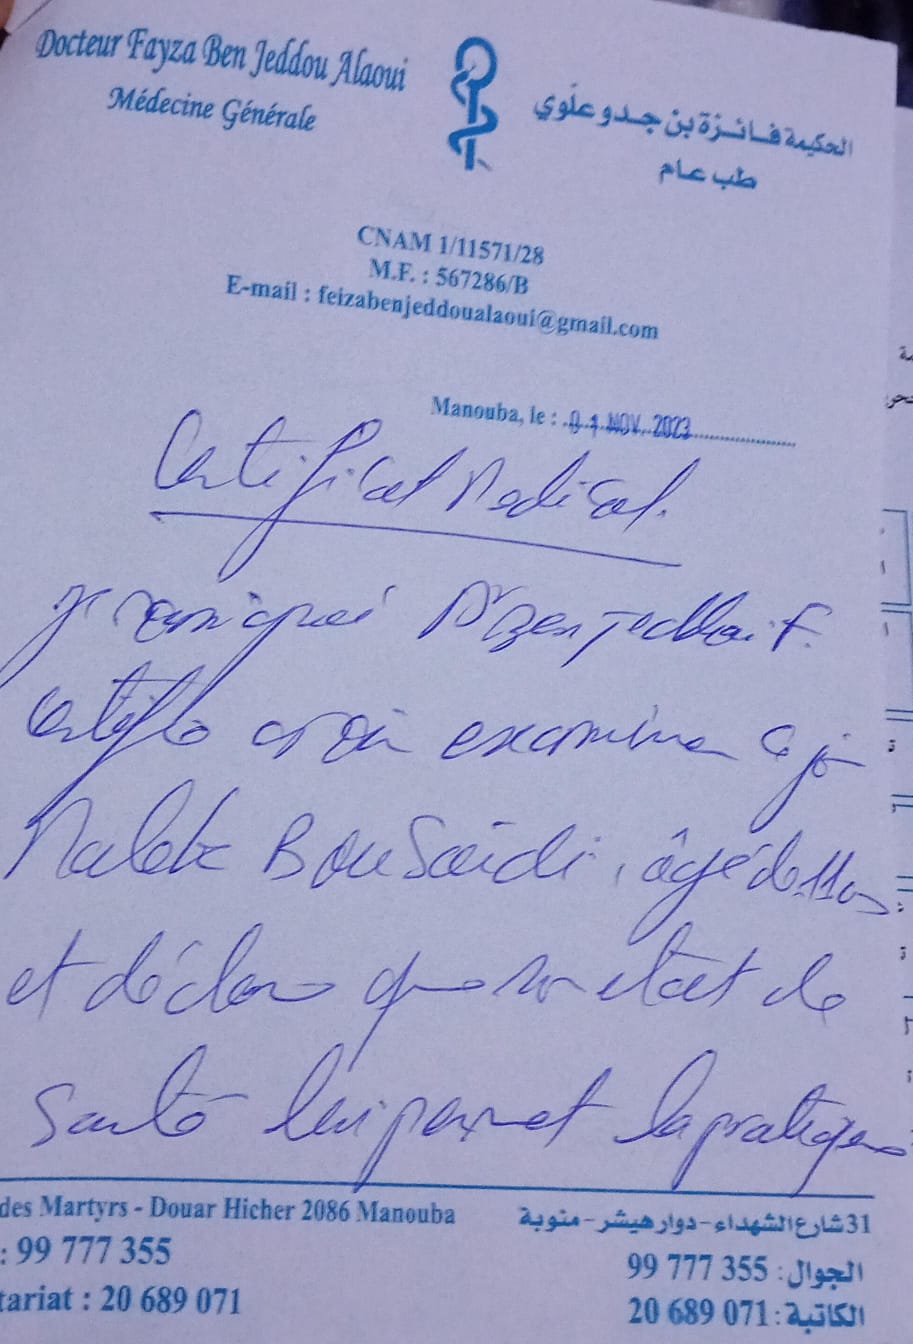 Docteur Fayza Ben Jeddou Alaoui
Médecine Générale
الحكيمة فائزة بن جدو علوي
طب عام
CNAM 1/11571/28
M.F. : 567286/B
E-mail : feizabenjeddoualaoui@gmail.com
Manouba, le : 01 NOV. 2023
Certificat Médical.
je soussigné Dr Ben Jeddou F.
certifie avoir examiné ce jour
Malek BouSaidi, âgé de 11 ans
et déclare que son état de
santé lui permet la pratique
des Martyrs - Douar Hicher 2086 Manouba
: 99 777 355
tariat : 20 689 071
31 شارع الشهداء - دوار هيشر - منوبة
الجوال : 355 777 99
الكاتبة : 071 689 20